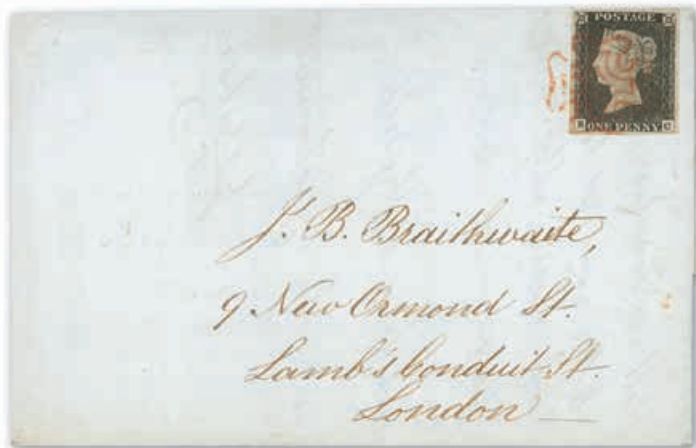 POSTAGE
ONE PENNY
J. B. Braithwaite,
9 New Ormond St.
Lamb's Conduit St.
London